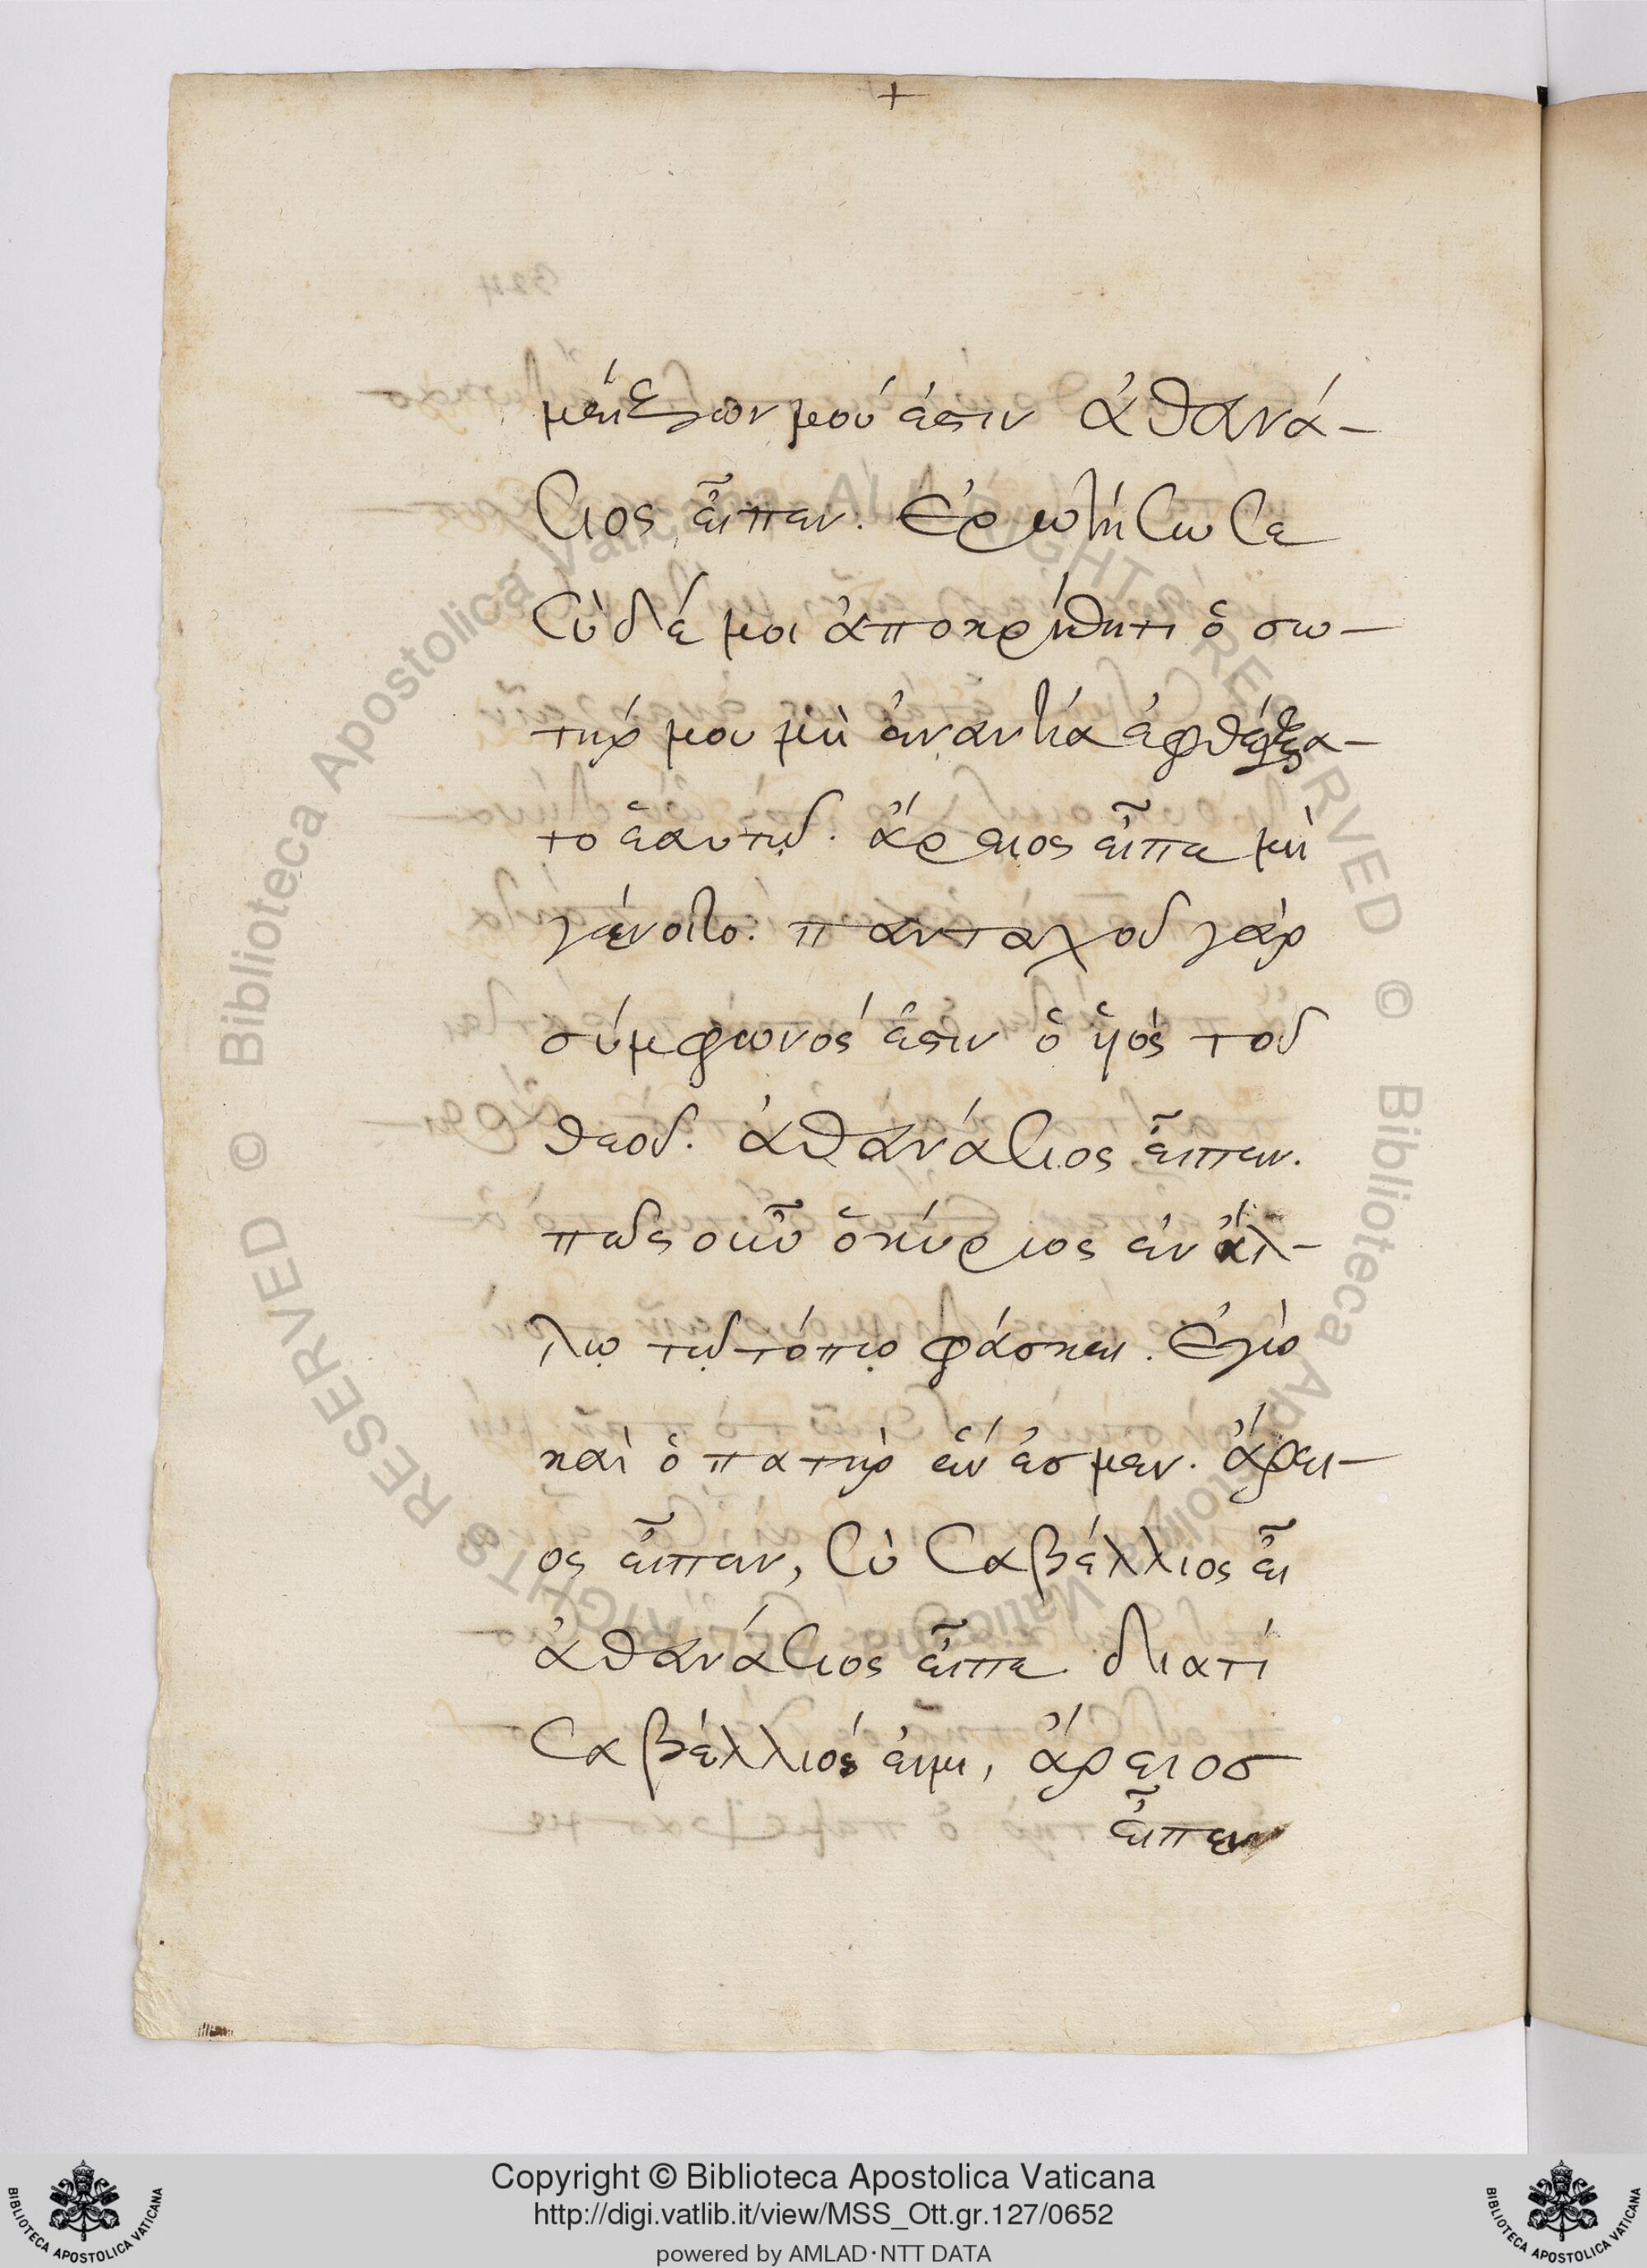 +
μείζων μού ἐστιν ἀθανά-
σιος εἶπεν. Ἐρωτήσω σε
σὺ δέ μοι ἀποκρίθητι ὁ σω-
τήρ μου μὴ ἐναντία ἐφθέγξα-
το ἑαυτῷ. ἄρειος εἶπε μὴ
γένοιτο. πανταχοῦ γάρ
σύμφωνός ἐστιν ὁ ὑιὸς τοῦ
θεοῦ. ἀθανάσιος εἶπεν.
πῶς οὖν ὁ κύριος ἐν ἄλ-
λῳ τῷ τόπῳ φάσκει. Ἐγὼ
καὶ ὁ πατὴρ ἕν ἐσμεν. ἄρει-
ος εἶπεν, σὺ σαβέλλιος εἶ
ἀθανάσιος εἶπε. διατί
σαβέλλιός εἰμι, ἄρειοσ
εἶπεν
Copyright © Biblioteca Apostolica Vaticana
http://digi.vatlib.it/view/MSS_Ott.gr.127/0652
powered by AMLAD·NTT DATA
BIBLIOTECA APOSTOLICA VATICANA
BIBLIOTECA APOSTOLICA VATICANA
© Biblioteca Apostolica Vaticana ALL RIGHTS RESERVED
© Biblioteca Apostolica Vaticana ALL RIGHTS RESERVED